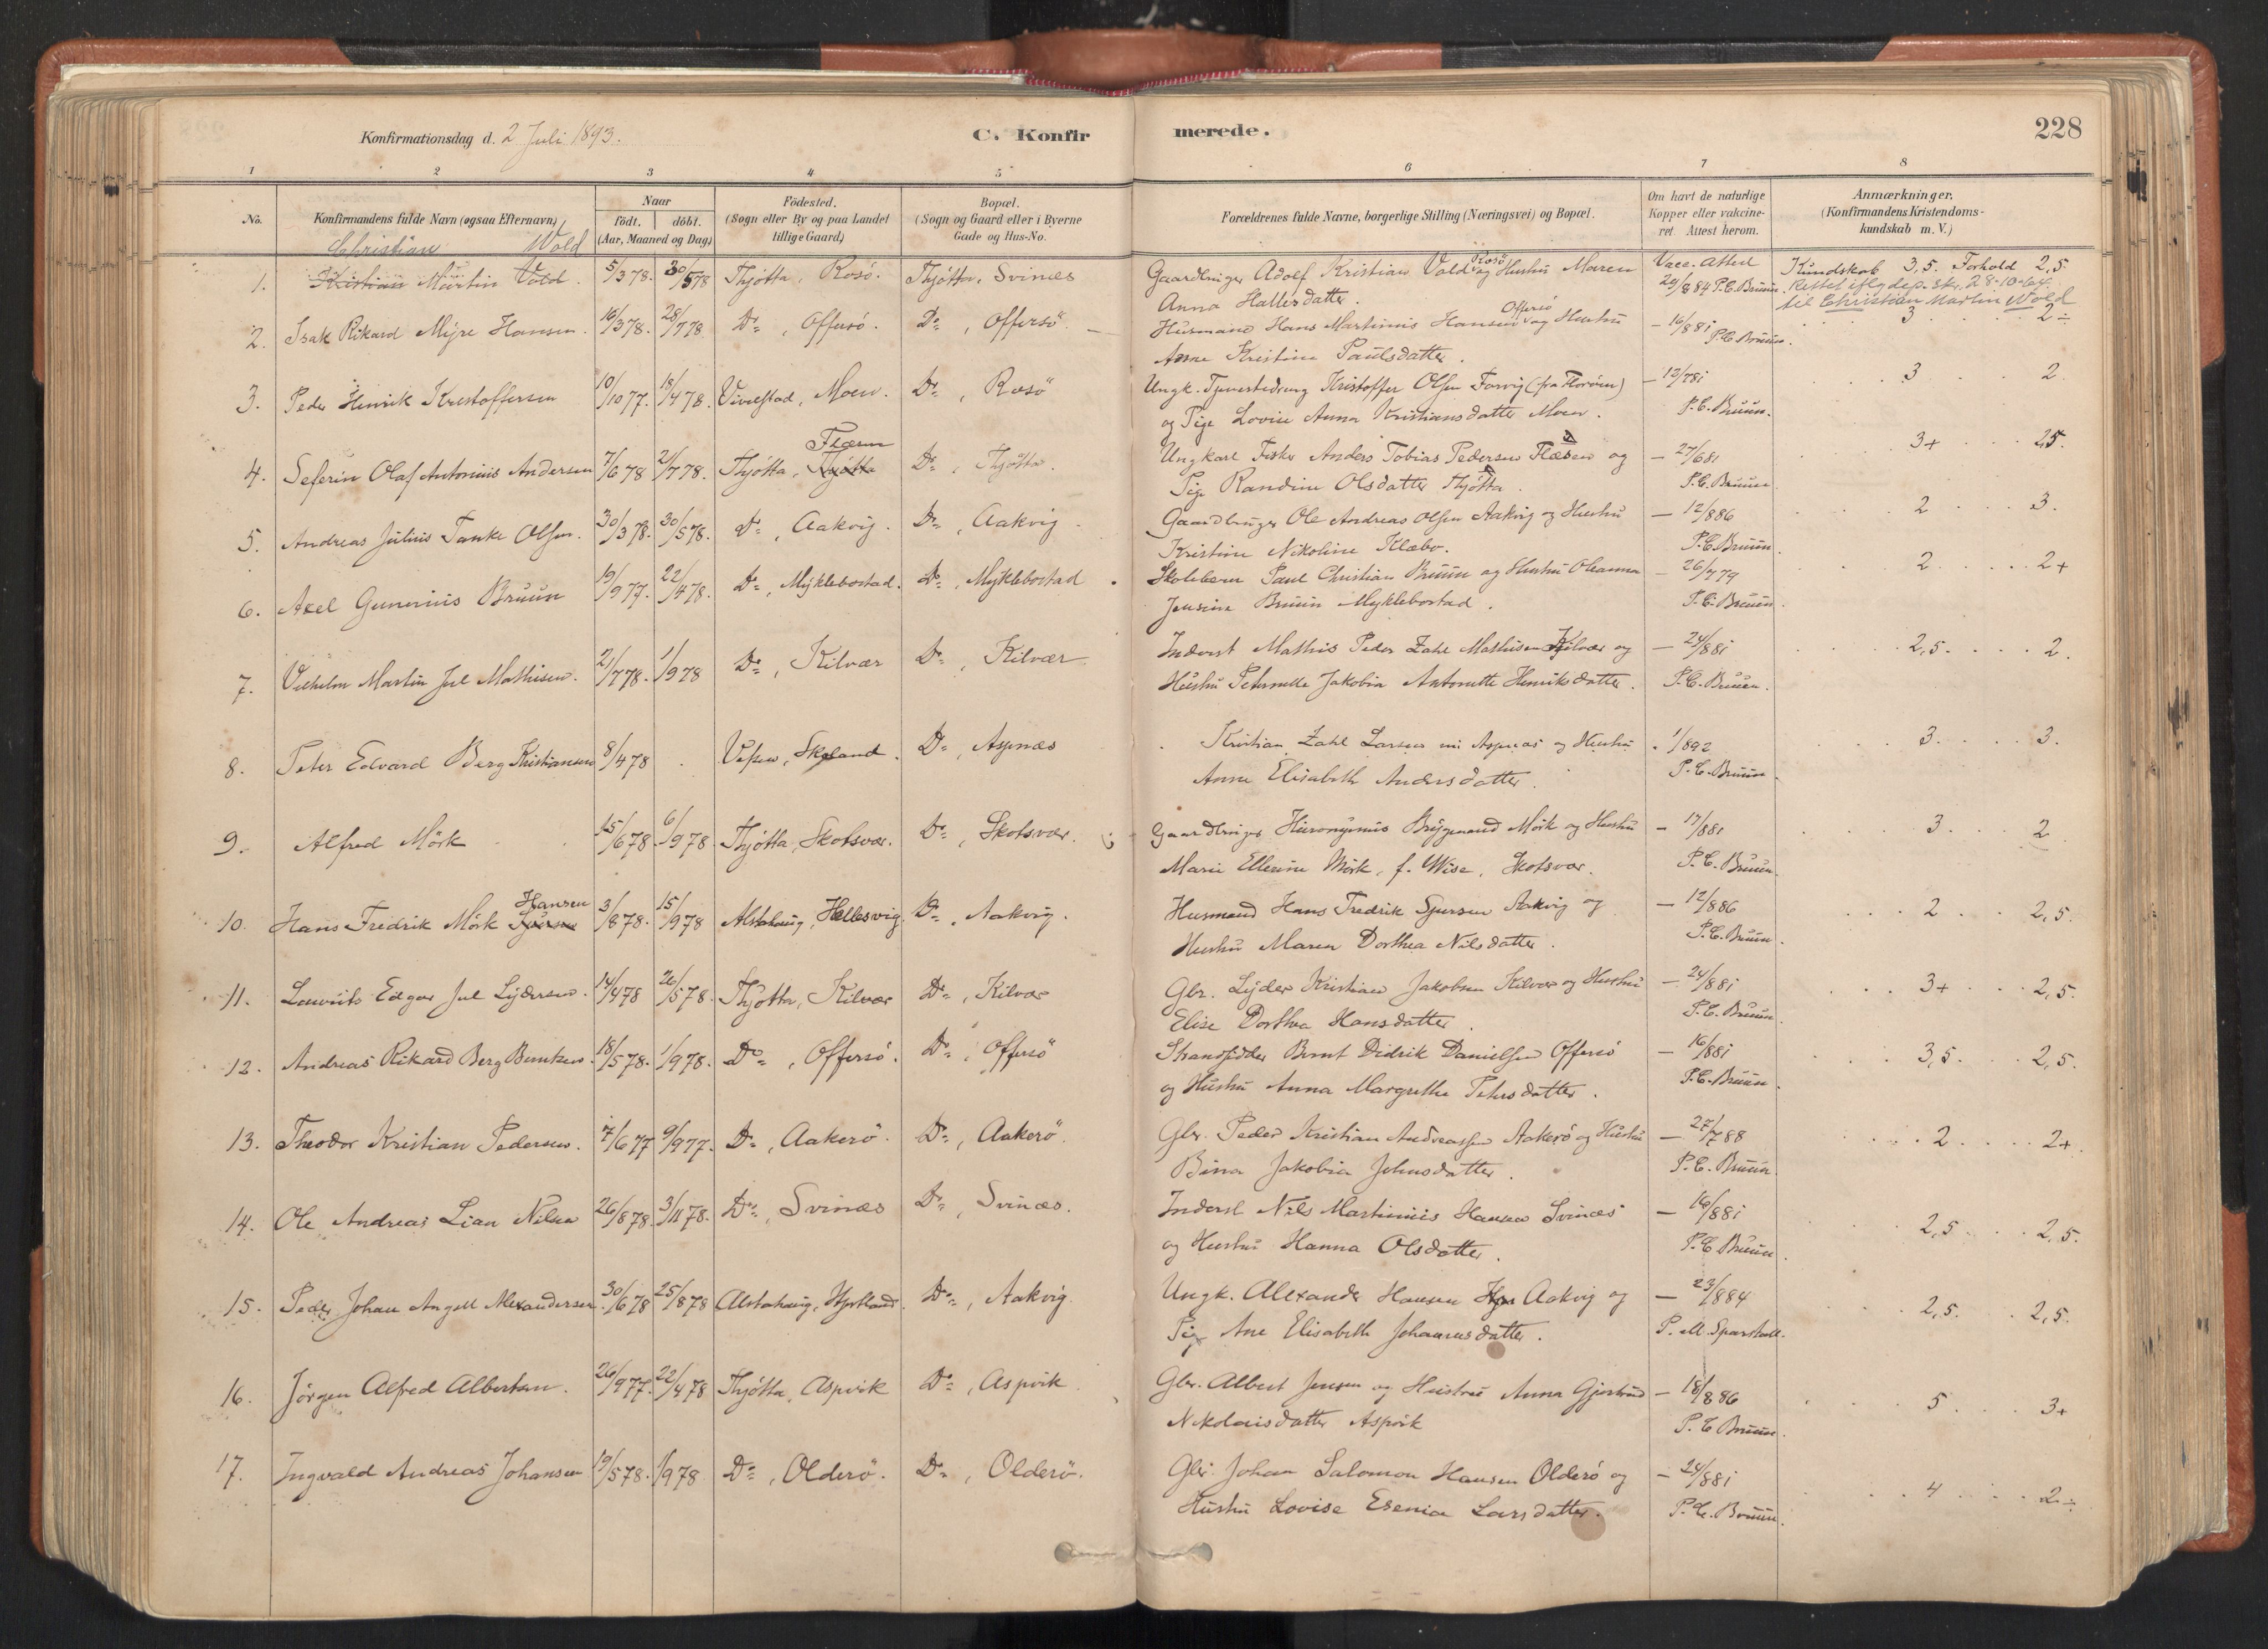 228
Konfirmationsdag d. 2 Juli 1893.
C. Konfirmerede.
1 2 3 4 5 6 7 8
No.
Konfirmandens fulde Navn (ogsaa Efternavn)
Naar
födt. döbt.
(Aar, Maaned og Dag)
Födested.
(Sogn eller By og paa Landet
tillige Gaard)
Bopæl.
(Sogn og Gaard eller i Byerne
Gade og Hus-No.
Forældrenes fulde Navne, borgerlige Stilling (Næringsvei) og Bopæl.
Om havt de naturlige
Kopper eller vakcine-
ret. Attest herom.
Anmærkninger.
(Konfirmandens Kristendoms-
kundskab m. V.)
Christian Wold
1. Kristian Martin Vold. 5/3 78. 30/5 78 Thjötta, Rosö. Thjötta, Svinæs Gaardbruger Adolf Kristian Vold Rosö og Hustru Maren Vacc. Attest Kundskab 3,5. Forhold 2,5.
Anna Hallesdatter. 20/8 84 P.C. Bruun. Rettet iflg dep. skr. 28-10-64
til Christian Martin Wold
2. Isak Rikard Mijre Hansen. 16/3 78. 28/7 78 Do, Offersö. Do, Offersö Husmand Hans Martinus Hansen Offersö og Hustru — 16/8 81 3 2÷
Anne Kristine Paulsdatter. P.C. Bruun.
3. Peder Henrik Kristoffersen 10/10 77. 18/4 78. Vivelstad, Moen. Do, Rosö Ungk. Tjenestedreng Kristoffer Olsen Forvig (fra Floröen) — 13/7 81 3 2
og Pige Lovise Anna Kristiansdatter Moen. P.C. Bruun.
4. Seferin Olaf Antonius Andersen 7/6 78 21/7 78. Thjötta, Thjötta Flæsen Do, Thjötta. Ungkarl Fisker Anders Tobias Pedersen Flæsen og — 27/6 81 3+ 2,5.
Pige Randine Olsdatter Thjötta. P.C. Bruun
5. Andreas Julius Tanke Olsen. 30/3 78. 30/5 78. Do, Aakvig. Do, Aakvig Gaardbruger Ole Andreas Olsen Aakvig og Hustru — 12/8 86 2 3.
Kristine Nikoline Klæbo. P.C. Bruun.
6. Axel Gunerius Bruun 19/9 77. 22/4 78. Do, Myklebostad. Do, Myklebostad Skolelærer Paul Christian Bruun og Hustru Oleanna — 26/7 79 2 2+
Jensine Bruun Myklebostad. P.C. Bruun.
7. Vilhelm Martin Jul Mathisen. 21/7 78. 1/9 78 Do, Kilvær Do, Kilvær Inderst Mathis Peder Zahl Mathisen Kilvær og — 24/8 81 2,5. 2.
Hustru Petrnelle Jakobia Antonette Henriksdatter. P.C. Bruun.
8. Peter Edvard Berg Kristiansen 8/4 78 Vefsen, Skoland. Do, Aspnæs Kristian Zahl Larsen Aspnæs og Hustru 1/8 92 3. 3.
Anne Elisabeth Andersdatter. P.C. Bruun.
9. Alfred Mörk 15/6 78. 6/9 78. Thjötta, Skotsvær. Do, Skotsvær. Gaardbruger Hieronymus Mörk og Hustru — 17/8 81 3. 2
Marie Ellerine Mörk, f. Wise, Skotsvær. P.C. Bruun.
10. Hans Fredrik Mörk Sjursen Hansen 3/8 78. 15/9 78 Alstahaug, Hellesvig. Do, Aakvig. Husmand Hans Fredrik Sjursen Aakvig og — 12/8 86 2 2,5.
Hustru Maren Dorthea Nilsdatter. P.C. Bruun.
11. Laurits Edgar Jul Lydersen. 14/4 78 26/5 78. Thjötta, Kilvær Do, Kilvær Gbr. Lyder Kristian Jakobsen Kilvær og Hustru — 24/8 81 3+ 2,5.
Elise Dorthea Hansdatter. P.C. Bruun.
12. Andreas Rikard Berg Berntsen. 18/5 78. 1/9 78. Do, Offersö. Do, Offersö Strandsidder Bernt Didrik Danielsen Offersö — 16/8 81 3,5. 2,5.
og Hustru Anna Margrethe Petersdatter. P.C. Bruun.
13. Theodor Kristian Pedersen. 7/6 77 9/9 77. Do, Aakerö. Do, Aakerö. Gbr. Peder Kristian Andreassen Aakerö og Hustru — 27/7 88 2 2+
Bina Jakobia Johnsdatter. P.C. Bruun.
14. Ole Andreas Lian Nilsen 26/8 78. 3/11 78. Do, Svinæs Do, Svinæs. Inderst Nils Martinius Hansen Svinæs — 16/8 81 2,5 2,5.
og Hustru Hanna Olsdatter. P.C. Bruun.
15. Peder Johan Angell Alexandersen 30/6 78 25/8 78 Alstahaug, Hjortland. Do, Aakvig. Ungk. Alexander Hansen Aakvig og — 23/8 84 2,5. 2,5.
Pige Ane Elisabeth Johannesdatter. P. M. Sparsholt.
16. Jörgen Alfred Albertsen. 26/9 77. 22/4 78 Thjötta, Aspvik Do, Aspvik Gbr. Albert Jensen og Hustru Anna Gjertrud — 18/8 86 5 3+
Nikolaisdatter Aspvik P.C. Bruun.
17. Ingvald Andreas Johansen 19/5 78. 1/9 78 Do, Olderö. Do, Olderö. Gbr. Johan Salomon Hansen Olderö og — 24/8 81 4 2÷
Hustru Lovise Esenia Larsdatter. P.C. Bruun.